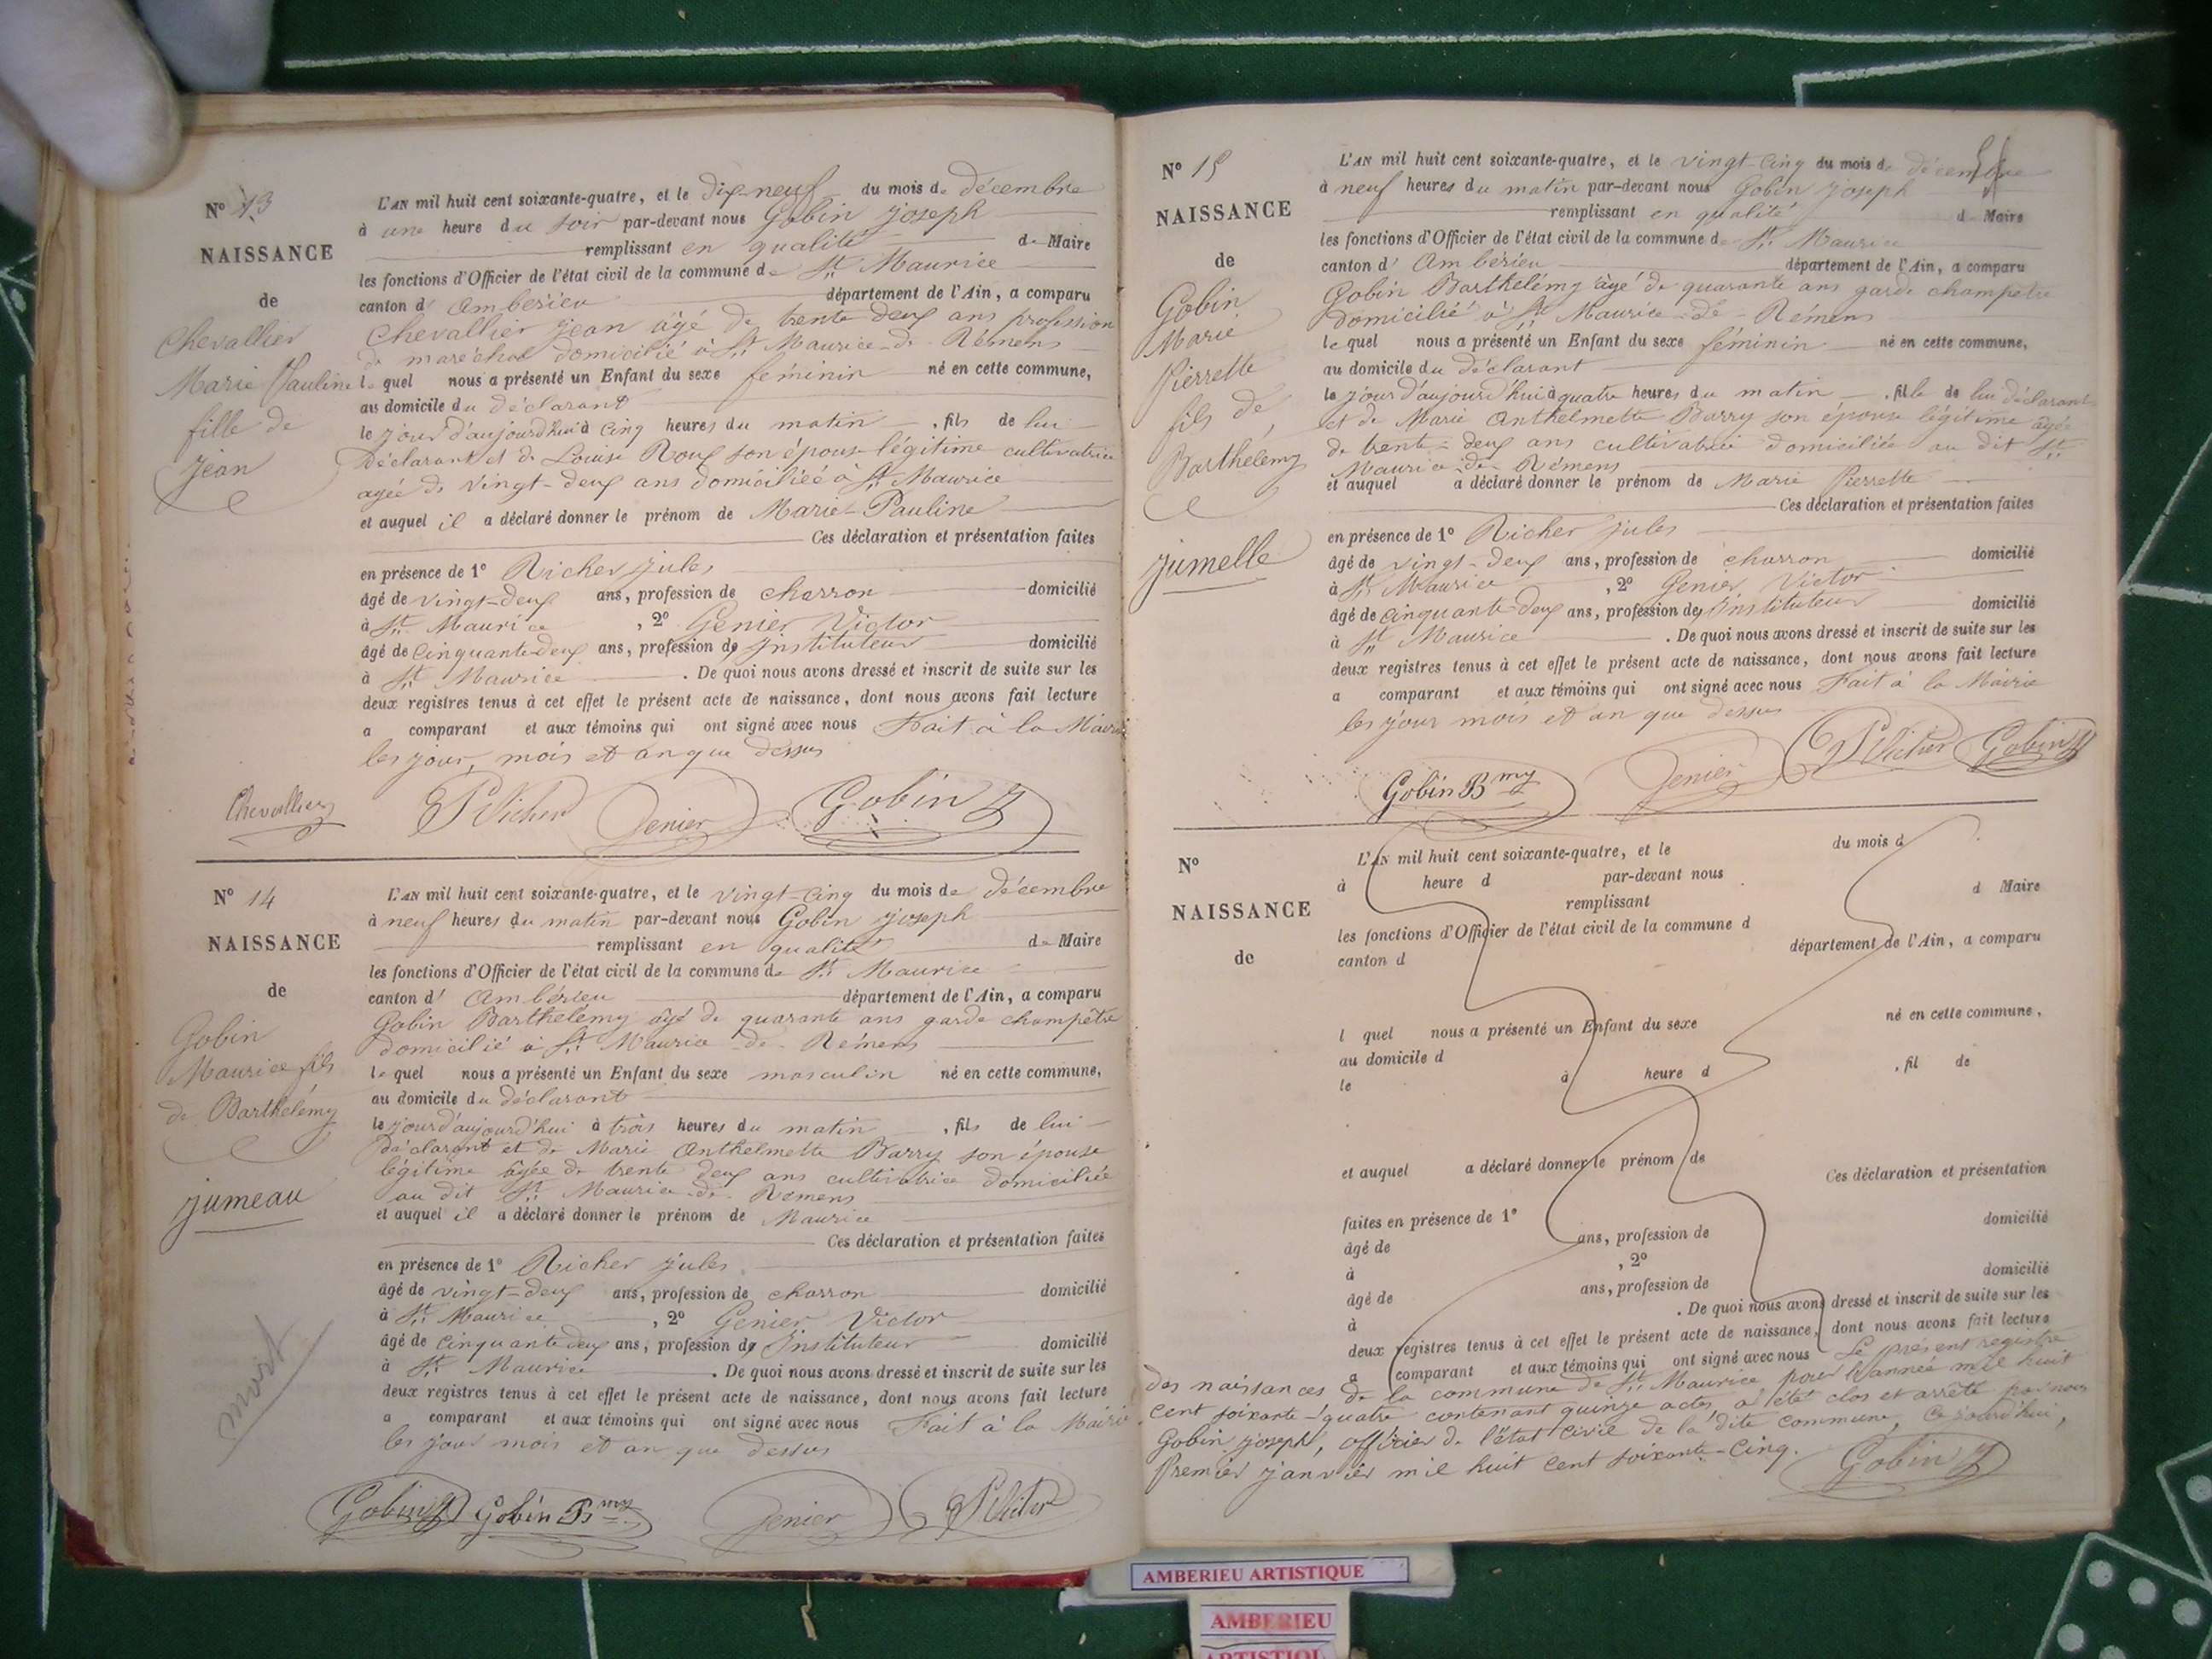 N° 13
NAISSANCE
de
Chevallier
Marie Pauline
fille de
Jean
L'AN mil huit cent soixante-quatre, et le Dix-neuf du mois de décembre
à une heure du soir par-devant nous Gobin Joseph
remplissant en qualité de Maire
les fonctions d'Officier de l'état civil de la commune de St Maurice
canton d' Ambérieu département de l'Ain, a comparu
Chevallier Jean âgé de trente deux ans profession
de maréchal domicilié à St Maurice-de-Rémens
lequel nous a présenté un Enfant du sexe féminin né en cette commune,
au domicile du déclarant
le jour d'aujourd'hui à cinq heures du matin, fils de lui
Déclarant et de Louise Roux son épouse légitime cultivatrice
agée de vingt-deux ans domiciliée à St Maurice
et auquel il a déclaré donner le prénom de Marie-Pauline
Ces déclaration et présentation faites
en présence de 1° Richer Jules
âgé de vingt-deux ans, profession de charron domicilié
à St Maurice, 2° Genier Victor
âgé de cinquante-deux ans, profession de Instituteur domicilié
à St Maurice. De quoi nous avons dressé et inscrit de suite sur les
deux registres tenus à cet effet le présent acte de naissance, dont nous avons fait lecture
a comparant et aux témoins qui ont signé avec nous Fait à la Mairie
les jour, mois et an que dessus
Chevallier Genier Gobin J
N° 14
NAISSANCE
de
Gobin
Maurice fils
de Barthélémy
jumeau
mort
L'AN mil huit cent soixante-quatre, et le vingt-cinq du mois de décembre
à neuf heures du matin par-devant nous Gobin Joseph
remplissant en qualité de Maire
les fonctions d'Officier de l'état civil de la commune de St Maurice
canton d' Ambérieu département de l'Ain, a comparu
Gobin Barthélémy âgé de quarante ans garde champêtre
domicilié à St Maurice-de-Rémens
lequel nous a présenté un Enfant du sexe masculin né en cette commune,
au domicile du déclarant
le jour d'aujourd'hui à trois heures du matin, fils de lui
Déclarant et de Marie Anthelmette Barry son épouse
légitime âgée de trente deux ans cultivatrice domiciliée
au dit St Maurice-de-Rémens
et auquel il a déclaré donner le prénom de Maurice
Ces déclaration et présentation faites
en présence de 1° Richer Jules
âgé de vingt-deux ans, profession de charron domicilié
à St Maurice, 2° Genier Victor
âgé de cinquante deux ans, profession de Instituteur domicilié
à St Maurice. De quoi nous avons dressé et inscrit de suite sur les
deux registres tenus à cet effet le présent acte de naissance, dont nous avons fait lecture
a comparant et aux témoins qui ont signé avec nous Fait à la Mairie
les jour mois et an que dessus
Gobin J Gobin Bmy Genier
N° 15
NAISSANCE
de
Gobin
Marie
Pierrette
fils de
Barthélémy
jumelle
L'AN mil huit cent soixante-quatre, et le vingt-cinq du mois de décembre
à neuf heures du matin par-devant nous Gobin Joseph
remplissant en qualité de Maire
les fonctions d'Officier de l'état civil de la commune de St Maurice
canton d' Ambérieu département de l'Ain, a comparu
Gobin Barthélémy âgé de quarante ans garde champêtre
domicilié à St Maurice-de-Rémens
lequel nous a présenté un Enfant du sexe féminin né en cette commune,
au domicile du déclarant
le jour d'aujourd'hui à quatre heures du matin, fille de lui déclarant
et de Marie Anthelmette Barry son épouse légitime âgée
de trente-deux ans cultivatrice domiciliée au dit St
Maurice-de-Rémens
et auquel a déclaré donner le prénom de Marie Pierrette
Ces déclaration et présentation faites
en présence de 1° Richer Jules
âgé de vingt-deux ans, profession de charron domicilié
à St Maurice, 2° Genier Victor
âgé de cinquante deux ans, profession de Instituteur domicilié
à St Maurice. De quoi nous avons dressé et inscrit de suite sur les
deux registres tenus à cet effet le présent acte de naissance, dont nous avons fait lecture
a comparant et aux témoins qui ont signé avec nous Fait à la Mairie
les jour mois et an que dessus
Gobin Bmy Genier Gobin J
N°
NAISSANCE
de
L'AN mil huit cent soixante-quatre, et le du mois d
à heure d par-devant nous
remplissant d Maire
les fonctions d'Officier de l'état civil de la commune d
canton d département de l'Ain, a comparu
l quel nous a présenté un Enfant du sexe né en cette commune,
au domicile d
le à heure d, fil de
et auquel a déclaré donner le prénom de
Ces déclaration et présentation
faites en présence de 1°
âgé de ans, profession de domicilié
à , 2°
âgé de ans, profession de domicilié
à . De quoi nous avons dressé et inscrit de suite sur les
deux registres tenus à cet effet le présent acte de naissance, dont nous avons fait lecture
a comparant et aux témoins qui ont signé avec nous Le présent registre
des naissances de la commune de St Maurice pour l'année mil huit
cent soixante-quatre contenant quinze actes, a été clos et arrêté par nous
Gobin Joseph, officier de l'état civil de la dite commune, ce jourd'hui,
Premier janvier mil huit cent soixante-cinq.
Gobin J
AMBERIEU ARTISTIQUE
AMBERIEU
ARTISTIQU